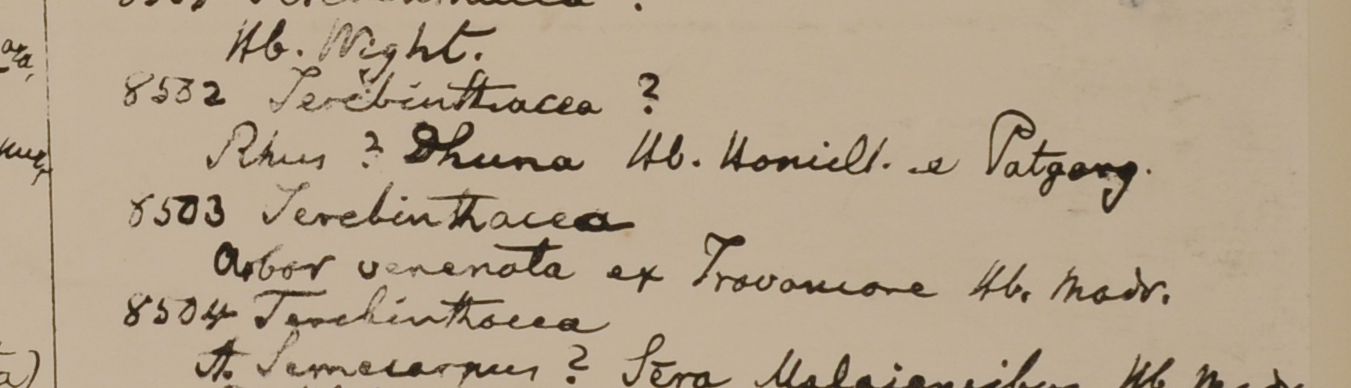 Hb. Wight.
8502 Terebinthacea ?
Rhus ? Dhuna Hb. Hamilt. e Patgong.
8503 Terebinthacea
Arbor venenata ex Travancore Hb. Madr.
8504 Terebinthacea
A. Semecarpus ? Sēra Malaiensibus Hb Mad